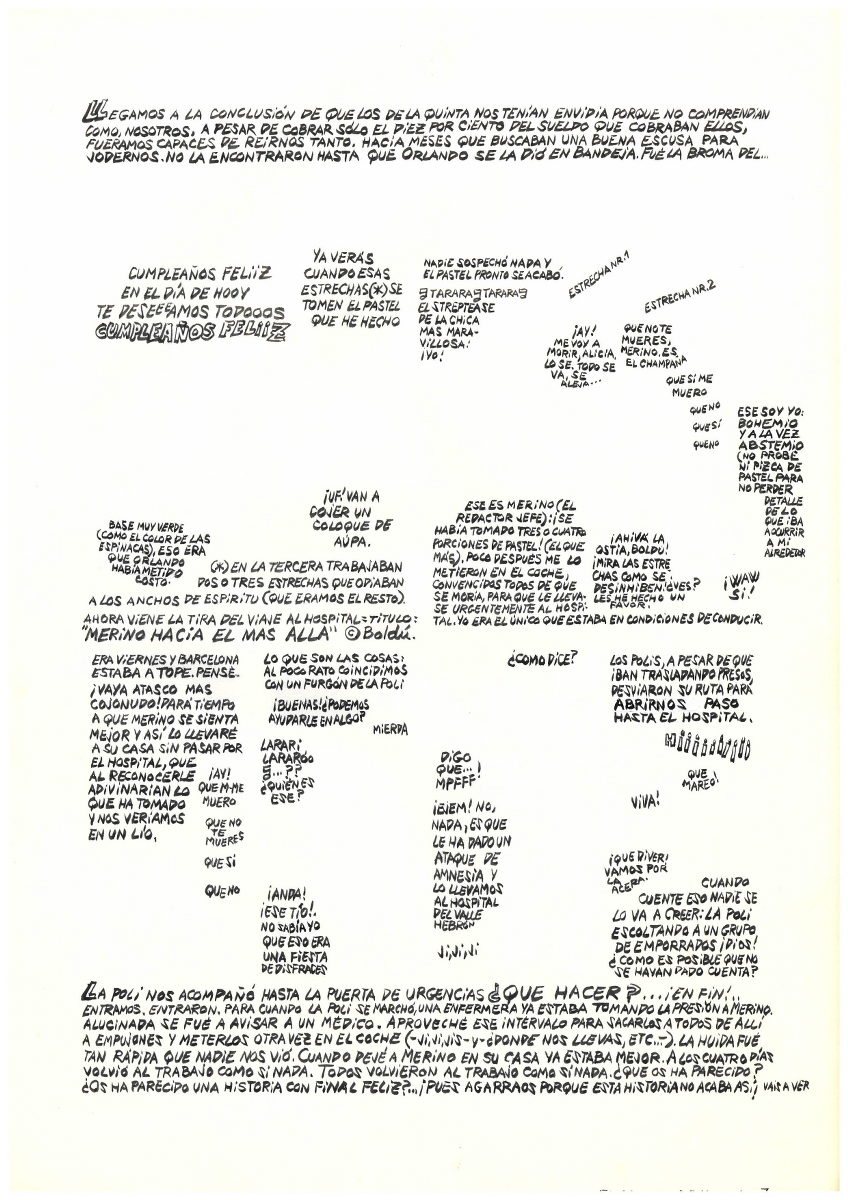 LLEGAMOS A LA CONCLUSIÓN DE QUE LOS DE LA QUINTA NOS TENÍAN ENVIDIA PORQUE NO COMPRENDÍAN
COMO, NOSOTROS, A PESAR DE COBRAR SÓLO EL DIEZ POR CIENTO DEL SUELDO QUE COBRABAN ELLOS,
FUERAMOS CAPACES DE REIRNOS TANTO. HACÍA MESES QUE BUSCABAN UNA BUENA ESCUSA PARA
JODERNOS. NO LA ENCONTRARON HASTA QUE ORLANDO SE LA DIÓ EN BANDEJA. FUÉ LA BROMA DEL...
CUMPLEAÑOS FELIIZ
EN EL DÍA DE HOOY
TE DESEEEAMOS TODOOOS
CUMPLEAÑOS FELIIZ
YA VERÁS
CUANDO ESAS
ESTRECHAS(*) SE
TOMEN EL PASTEL
QUE HE HECHO
NADIE SOSPECHÓ NADA Y
EL PASTEL PRONTO SE ACABÓ.
TARARA TARARA
EL STREPTEASE
DE LA CHICA
MAS MARA-
VILLOSA:
¡YO!
ESTRECHA NR.1
ESTRECHA NR.2
¡AY!
ME VOY A
MORIR, ALICIA,
LO SE. TODO SE
VA, SE
ALEJA...
QUE NO TE
MUERES,
MERINO. ES
EL CHAMPAÑA
QUE SI ME
MUERO
QUE NO
QUE SI
QUE NO
ESE SOY YO:
BOHEMIO
Y A LA VEZ
ABSTEMIO
(NO PROBÉ
NI PIZCA DE
PASTEL PARA
NO PERDER
DETALLE
DE LO
QUE IBA
A OCURRIR
A MI
ALREDEDOR
BASE MUY VERDE
(COMO EL COLOR DE LAS
ESPINACAS), ESO ERA
QUE ORLANDO
HABÍA METIDO
COSTO.
(*) EN LA TERCERA TRABAJABAN
DOS O TRES ESTRECHAS QUE ODIABAN
A LOS ANCHOS DE ESPIRITU (QUE ERAMOS EL RESTO).
¡UF! VAN A
COJER UN
COLOQUE DE
AÚPA.
ESE ES MERINO (EL
REDACTOR JEFE): ¡SE
HABÍA TOMADO TRES O CUATRO
PORCIONES DE PASTEL! (EL QUE
MÁS). POCO DESPUÉS ME LO
METIERON EN EL COCHE,
CONVENCIDOS TODOS DE QUE
SE MORÍA, PARA QUE LE LLEVA-
SE URGENTEMENTE AL HOSPI-
TAL. YO ERA EL ÚNICO QUE ESTABA EN CONDICIONES DE CONDUCIR.
¡AHIVÁ LA
OSTIA, BOLDÚ!
¡MIRA LAS ESTRE
CHAS COMO SE
DESINHIBEN! ¿VES?
LES HE HECHO UN
FAVOR.
¡WAW
SI!
AHORA VIENE LA TIRA DEL VIAJE AL HOSPITAL: TÍTULO:
"MERINO HACIA EL MAS ALLÁ" © Boldú.
ERA VIERNES Y BARCELONA
ESTABA A TOPE. PENSÉ:
¡VAYA ATASCO MAS
COJONUDO! DARÁ TIEMPO
A QUE MERINO SE SIENTA
MEJOR Y ASÍ, LO LLEVARÉ
A SU CASA SIN PASAR POR
EL HOSPITAL, QUE
AL RECONOCERLE
ADIVINARÍAN LO
QUE HA TOMADO
Y NOS VERÍAMOS
EN UN LÍO.
¡AY!
QUE M-ME
MUERO
QUE NO
TE
MUERES
QUE SI
QUE NO
LO QUE SON LAS COSAS:
AL POCO RATO COINCIDIMOS
CON UN FURGÓN DE LA POLI
¡BUENAS! ¿PODEMOS
AYUDARLE EN ALGO?
MIERDA
LARARI
LARAROO
...??
¿QUIEN ES
ESE?
¡ANDA!
¡ESE TÍO!.
NO SABÍA YO
QUE ESO ERA
UNA FIESTA
DE DISFRACES
¿COMO DICE?
DIGO
QUE...!
MPFFF'
¡EJEM! NO,
NADA, ES QUE
LE HA DADO UN
ATAQUE DE
AMNESIA Y
LO LLEVAMOS
AL HOSPITAL
DEL VALLE
HEBRÓN
JI, JI, JI
LOS POLIS, A PESAR DE QUE
IBAN TRASLADANDO PRESOS,
DESVIARON SU RUTA PARA
ABRIRNOS PASO
HASTA EL HOSPITAL.
QUE
MAREO!
VIVA!
¡QUE DIVER!
VAMOS POR
LA
ACERA.
CUANDO
CUENTE ESO NADIE SE
LO VA A CREER: LA POLI
ESCOLTANDO A UN GRUPO
DE EMPORRADOS ¡DIOS!
¿COMO ES POSIBLE QUE NO
SE HAYAN DADO CUENTA?
LA POLI NOS ACOMPAÑÓ HASTA LA PUERTA DE URGENCIAS ¿QUE HACER?...¡EN FIN!..
ENTRAMOS. ENTRARON. PARA CUANDO LA POLI SE MARCHÓ, UNA ENFERMERA YA ESTABA TOMANDO LA PRESIÓN A MERINO.
ALUCINADA SE FUÉ A AVISAR A UN MÉDICO. APROVECHÉ ESE INTÉRVALO PARA SACARLOS A TODOS DE ALLÍ
A EMPUJONES Y METERLOS OTRA VEZ EN EL COCHE (-JI, JI, JIS- Y -¿DONDE NOS LLEVAS, ETC..-). LA HUIDA FUÉ
TAN RÁPIDA QUE NADIE NOS VIÓ. CUANDO DEJÉ A MERINO EN SU CASA YA ESTABA MEJOR. A LOS CUATRO DÍAS
VOLVIÓ AL TRABAJO COMO SI NADA. TODOS VOLVIERON AL TRABAJO COMO SI NADA. ¿QUE OS HA PARECIDO?
¿OS HA PARECIDO UNA HISTORIA CON FINAL FELIZ?...¡PUES AGARRAOS PORQUE ESTA HISTORIA NO ACABA ASÍ! VAIS A VER